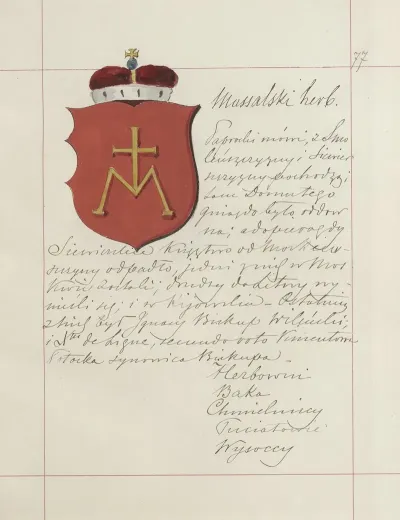 77
Massalski herb.
Paprocki mówi, z Smo
leńszczyzny i Siewier
szczyzny pochodzą i
tam Domu tego
gniazdo było oddaw
na; a dopiero gdy
Siewierskie Księztwo od Moskiew
szczyzny odpadło, jedni z nich w Mos
kwie zostali, drudzy do Litwy wy
nieśli się, i w Kijowskie – Ostatnim
z nich był Ignacy Biskup Wileński,
i de Ligne, secundo voto Vincentowa
Potocka synowica Biskupa –
Herbowni
Baka
Chmielniccy
Wysoccy